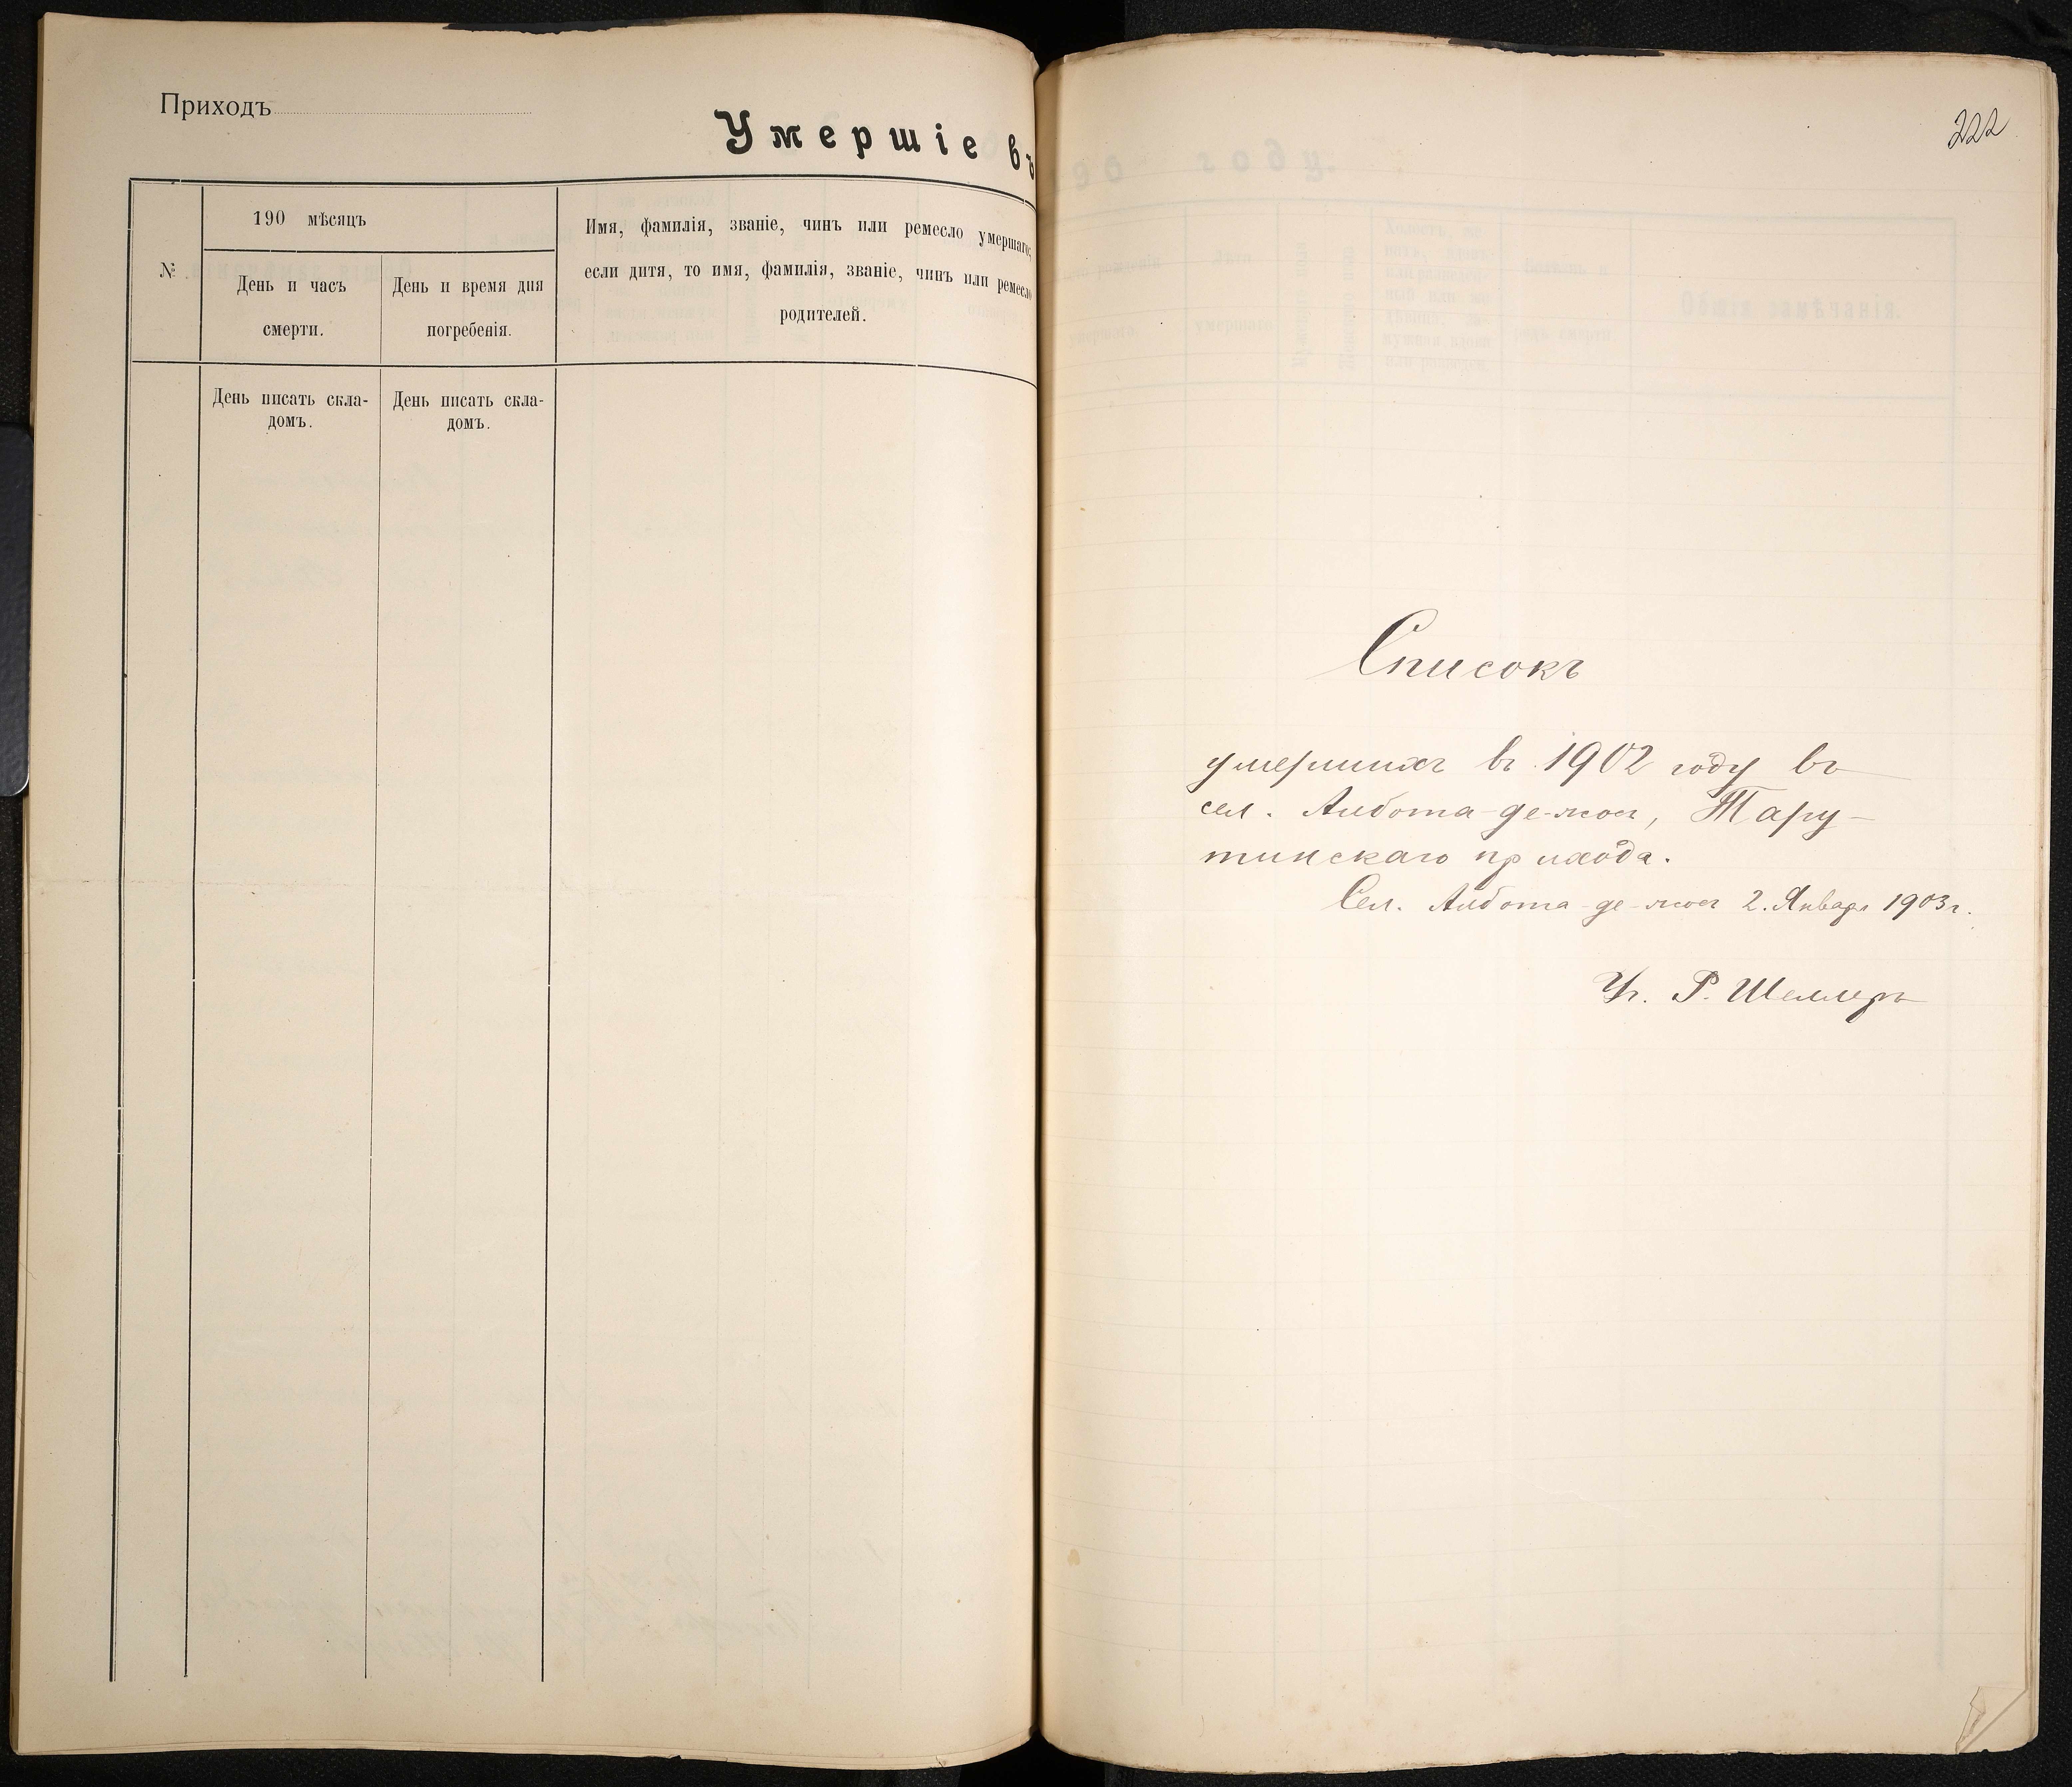 Приходъ
Умершіе въ
№
190 мѣсяцъ
День и часъ
смерти.
День и время дня
погребенія.
Имя, фамилія, званіе, чинъ или ремесло умершаго;
если дитя, то имя, фамилія, званіе, чинъ или ремесло
родителей.
День писать скла-
домъ.
День писать скла-
домъ.
222
Списокъ
умершихъ въ 1902 году въ
сел. Албота-де-жосъ, Тару-
тинскаго прихода.
Сел. Албота-де-жосъ 2. Января 1903 г.
Уч. Р. Шеллеръ